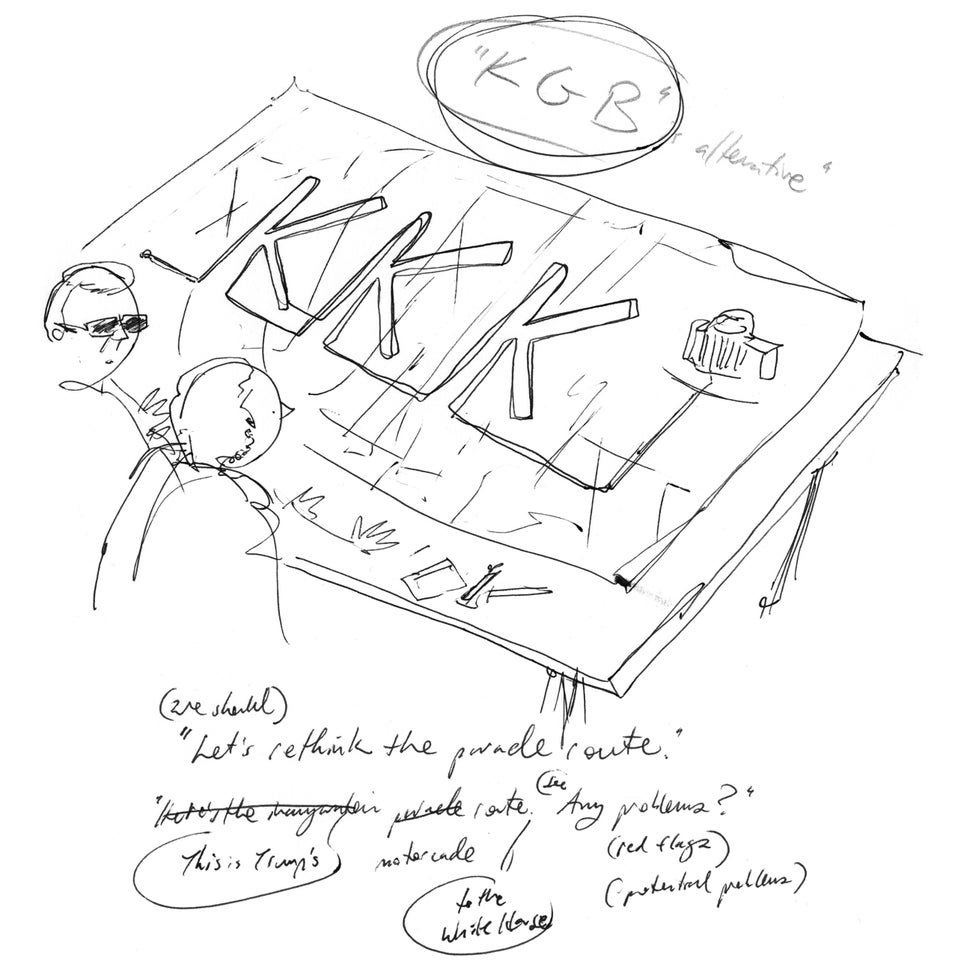 "KGB"
"alternative"
KKK
(we should)
"Let's rethink the parade route."
"Here's the inauguration parade route. (see) Any problems?"
This is Trump's motorcade (red flags)
to the (potential problems)
White House